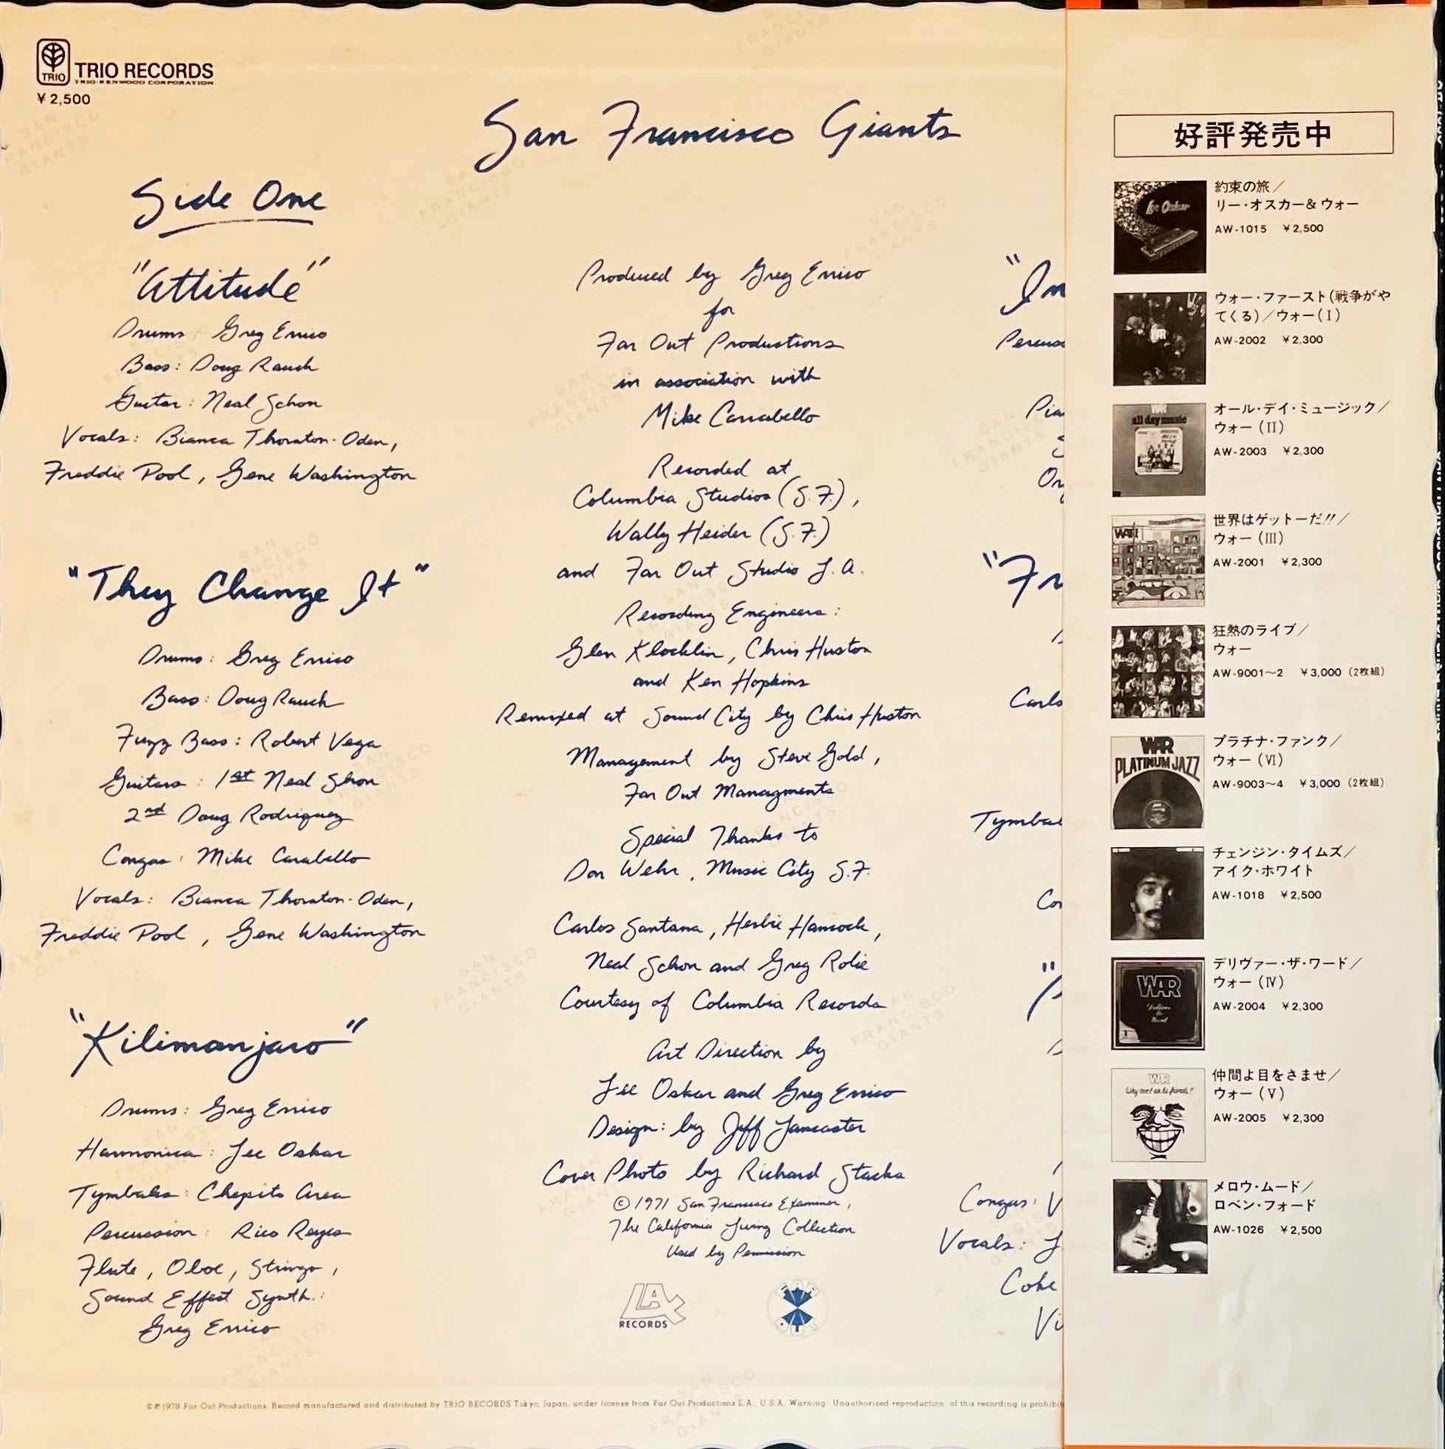 TRIO
TRIO RECORDS
TRIO-KENWOOD CORPORATION
¥2,500
San Francisco Giants
Side One
"Attitude"
Drums: Greg Errico
Bass: Doug Rauch
Guitar: Neal Schon
Vocals: Bianca Thornton-Oden,
Freddie Pool, Gene Washington
"They Change It"
Drums: Greg Errico
Bass: Doug Rauch
Fuzz Bass: Robert Vega
Guitars: 1st Neal Shon
2nd Doug Rodriguez
Congas: Mike Carabello
Vocals: Bianca Thornton-Oden,
Freddie Pool, Gene Washington
"Kilimanjaro"
Drums: Greg Errico
Harmonica: Lee Oskar
Tymbales: Chepito Area
Percussion: Rico Reyes
Flute, Oboe, Strings,
Sound Effect Synth.:
Greg Errico
Produced by Greg Errico
for
Far Out Productions
in association with
Mike Carrabello
Recorded at
Columbia Studios (S.F.),
Wally Heider (S.F.)
and Far Out Studio L.A.
Recording Engineers:
Glen Klocklin, Chris Huston
and Ken Hopkins
Remixed at Sound City by Chris Huston
Management by Steve Gold,
Far Out Managments
Special Thanks to
Don Wehr, Music City S.F.
Carlos Santana, Herbie Hancock,
Neal Schon and Greg Rolie
Courtesy of Columbia Records
Art Direction by
Lee Oskar and Greg Errico
Design: by Jeff Lancaster
Cover Photo by Richard Stacks
©1971 San Francisco Examiner,
The California Living Collection
Used by Permission
LAX
RECORDS
©℗1978 Far Out Productions. Record manufactured and distributed by TRIO RECORDS Tokyo, Japan, under license from Far Out Productions L.A., U.S.A. Warning: Unauthorized reproduction of this recording is prohibi
"In
Percus
Pia
Or
"Fr
Carlo
Tymbal
Co
Congas: V
Vocals: L
Coke
Vi
好評発売中
約束の旅／
リー・オスカー&ウォー
AW-1015 ¥2,500
ウォー・ファースト(戦争がや
てくる)／ウォー(I)
AW-2002 ¥2,300
オール・デイ・ミュージック／
ウォー(II)
AW-2003 ¥2,300
世界はゲットーだ!!／
ウォー(III)
AW-2001 ¥2,300
狂熱のライブ／
ウォー
AW-9001〜2 ¥3,000 (2枚組)
プラチナ・ファンク／
ウォー(VI)
AW-9003〜4 ¥3,000 (2枚組)
チェンジン・タイムズ／
アイク・ホワイト
AW-1018 ¥2,500
デリヴァー・ザ・ワード／
ウォー(IV)
AW-2004 ¥2,300
仲間よ目をさませ／
ウォー(V)
AW-2005 ¥2,300
メロウ・ムード／
ロベン・フォード
AW-1026 ¥2,500
Lee Oskar
WAR
all day music
WAR
WAR
PLATINUM JAZZ
WAR
WAR
Why can't we be friends?